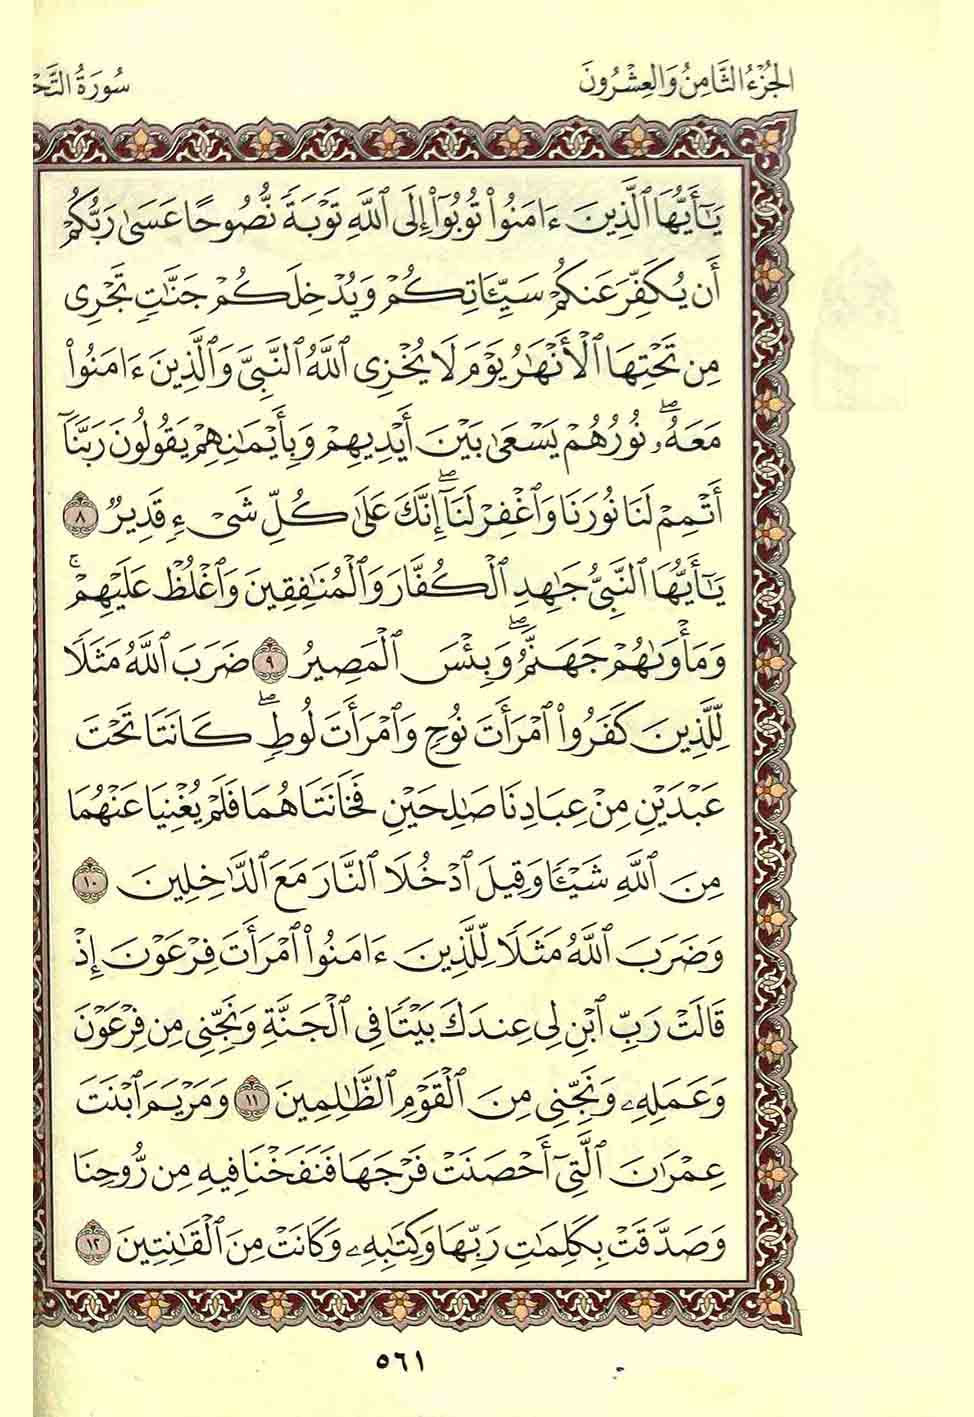 الجُزْءُ الثَّامِنُ وَالعِشْرُونَ
سُورَةُ التَّحْ
يَٰٓأَيُّهَا ٱلَّذِينَ ءَامَنُوا۟ تُوبُوٓا۟ إِلَى ٱللَّهِ تَوْبَةً نَّصُوحًا عَسَىٰ رَبُّكُمْ
أَن يُكَفِّرَ عَنكُمْ سَيِّـَٔاتِكُمْ وَيُدْخِلَكُمْ جَنَّٰتٍ تَجْرِى
مِن تَحْتِهَا ٱلْأَنْهَٰرُ يَوْمَ لَا يُخْزِى ٱللَّهُ ٱلنَّبِىَّ وَٱلَّذِينَ ءَامَنُوا۟
مَعَهُۥۖ نُورُهُمْ يَسْعَىٰ بَيْنَ أَيْدِيهِمْ وَبِأَيْمَٰنِهِمْ يَقُولُونَ رَبَّنَآ
أَتْمِمْ لَنَا نُورَنَا وَٱغْفِرْ لَنَآۖ إِنَّكَ عَلَىٰ كُلِّ شَىْءٍ قَدِيرٌ ٨
يَٰٓأَيُّهَا ٱلنَّبِىُّ جَٰهِدِ ٱلْكُفَّارَ وَٱلْمُنَٰفِقِينَ وَٱغْلُظْ عَلَيْهِمْۚ
وَمَأْوَىٰهُمْ جَهَنَّمُۖ وَبِئْسَ ٱلْمَصِيرُ ٩ ضَرَبَ ٱللَّهُ مَثَلًا
لِّلَّذِينَ كَفَرُوا۟ ٱمْرَأَتَ نُوحٍ وَٱمْرَأَتَ لُوطٍۖ كَانَتَا تَحْتَ
عَبْدَيْنِ مِنْ عِبَادِنَا صَٰلِحَيْنِ فَخَانَتَاهُمَا فَلَمْ يُغْنِيَا عَنْهُمَا
مِنَ ٱللَّهِ شَيْـًٔا وَقِيلَ ٱدْخُلَا ٱلنَّارَ مَعَ ٱلدَّٰخِلِينَ ١٠
وَضَرَبَ ٱللَّهُ مَثَلًا لِّلَّذِينَ ءَامَنُوا۟ ٱمْرَأَتَ فِرْعَوْنَ إِذْ
قَالَتْ رَبِّ ٱبْنِ لِى عِندَكَ بَيْتًا فِى ٱلْجَنَّةِ وَنَجِّنِى مِن فِرْعَوْنَ
وَعَمَلِهِۦ وَنَجِّنِى مِنَ ٱلْقَوْمِ ٱلظَّٰلِمِينَ ١١ وَمَرْيَمَ ٱبْنَتَ
عِمْرَٰنَ ٱلَّتِىٓ أَحْصَنَتْ فَرْجَهَا فَنَفَخْنَا فِيهِ مِن رُّوحِنَا
وَصَدَّقَتْ بِكَلِمَٰتِ رَبِّهَا وَكِتَٰبِهِۦ وَكَانَتْ مِنَ ٱلْقَٰنِتِينَ ١٢
٥٦١